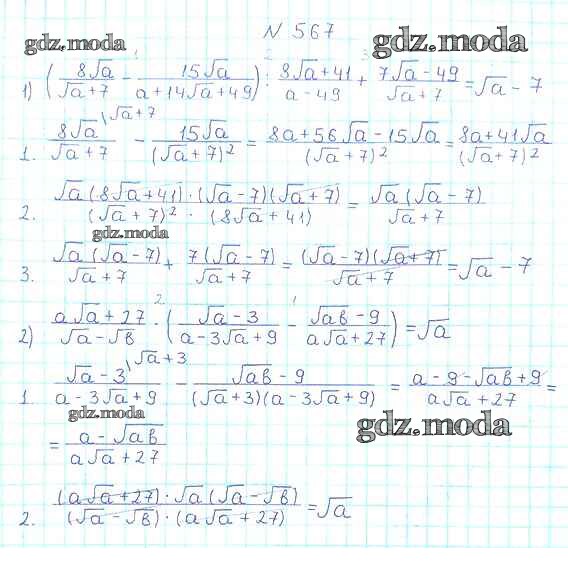 N 567
gdz.moda
gdz.moda
1) (8√a/(√a+7) - 15√a/(a+14√a+49)) : (8√a+41)/(a-49) + (7√a-49)/(√a+7) = √a - 7
1. 8√a/(√a+7) \√a+7 - 15√a/(√a+7)² = (8a+56√a-15√a)/(√a+7)² = (8a+41√a)/(√a+7)²
2. √a(8√a+41)·(√a-7)(√a+7)/((√a+7)²·(8√a+41)) = √a(√a-7)/(√a+7)
gdz.moda
3. √a(√a-7)/(√a+7) + 7(√a-7)/(√a+7) = (√a-7)(√a+7)/(√a+7) = √a - 7
2) (a√a+27)/(√a-√в) · ((√a-3)/(a-3√a+9) - (√aв-9)/(a√a+27)) = √a
1. (√a-3)/(a-3√a+9) \√a+3 - (√aв-9)/((√a+3)(a-3√a+9)) = (a-9-√aв+9)/(a√a+27) =
gdz.moda
gdz.moda
= (a-√aв)/(a√a+27)
2. (a√a+27)·√a(√a-√в)/((√a-√в)·(a√a+27)) = √a